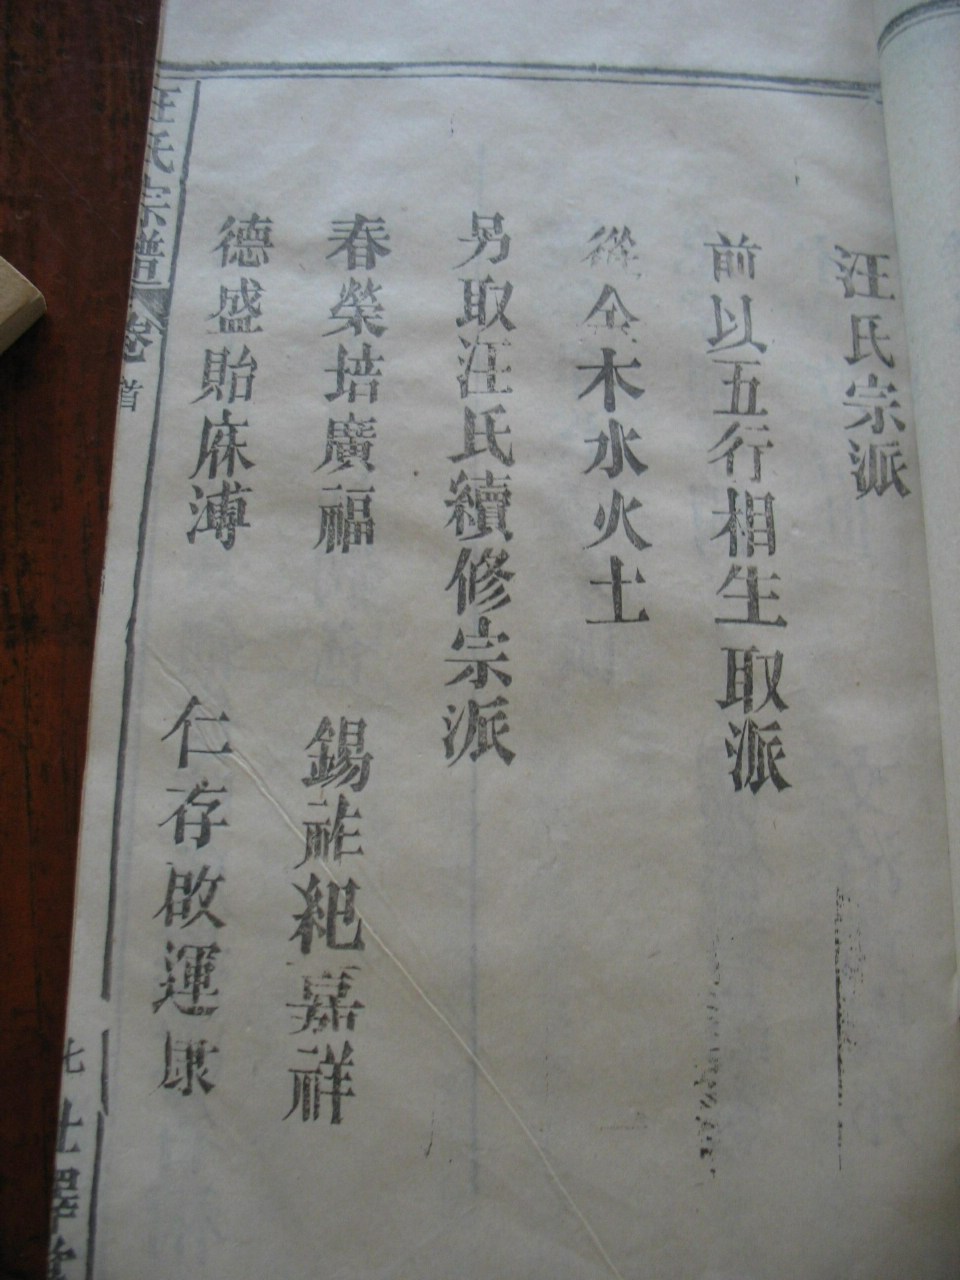 汪氏宗派
前以五行相生取派
從金木水火土
另取汪氏續修宗派
春榮培廣福 錫祚紀嘉祥
德盛貽庥溥 仁存啟運康
汪氏宗譜 卷首
七